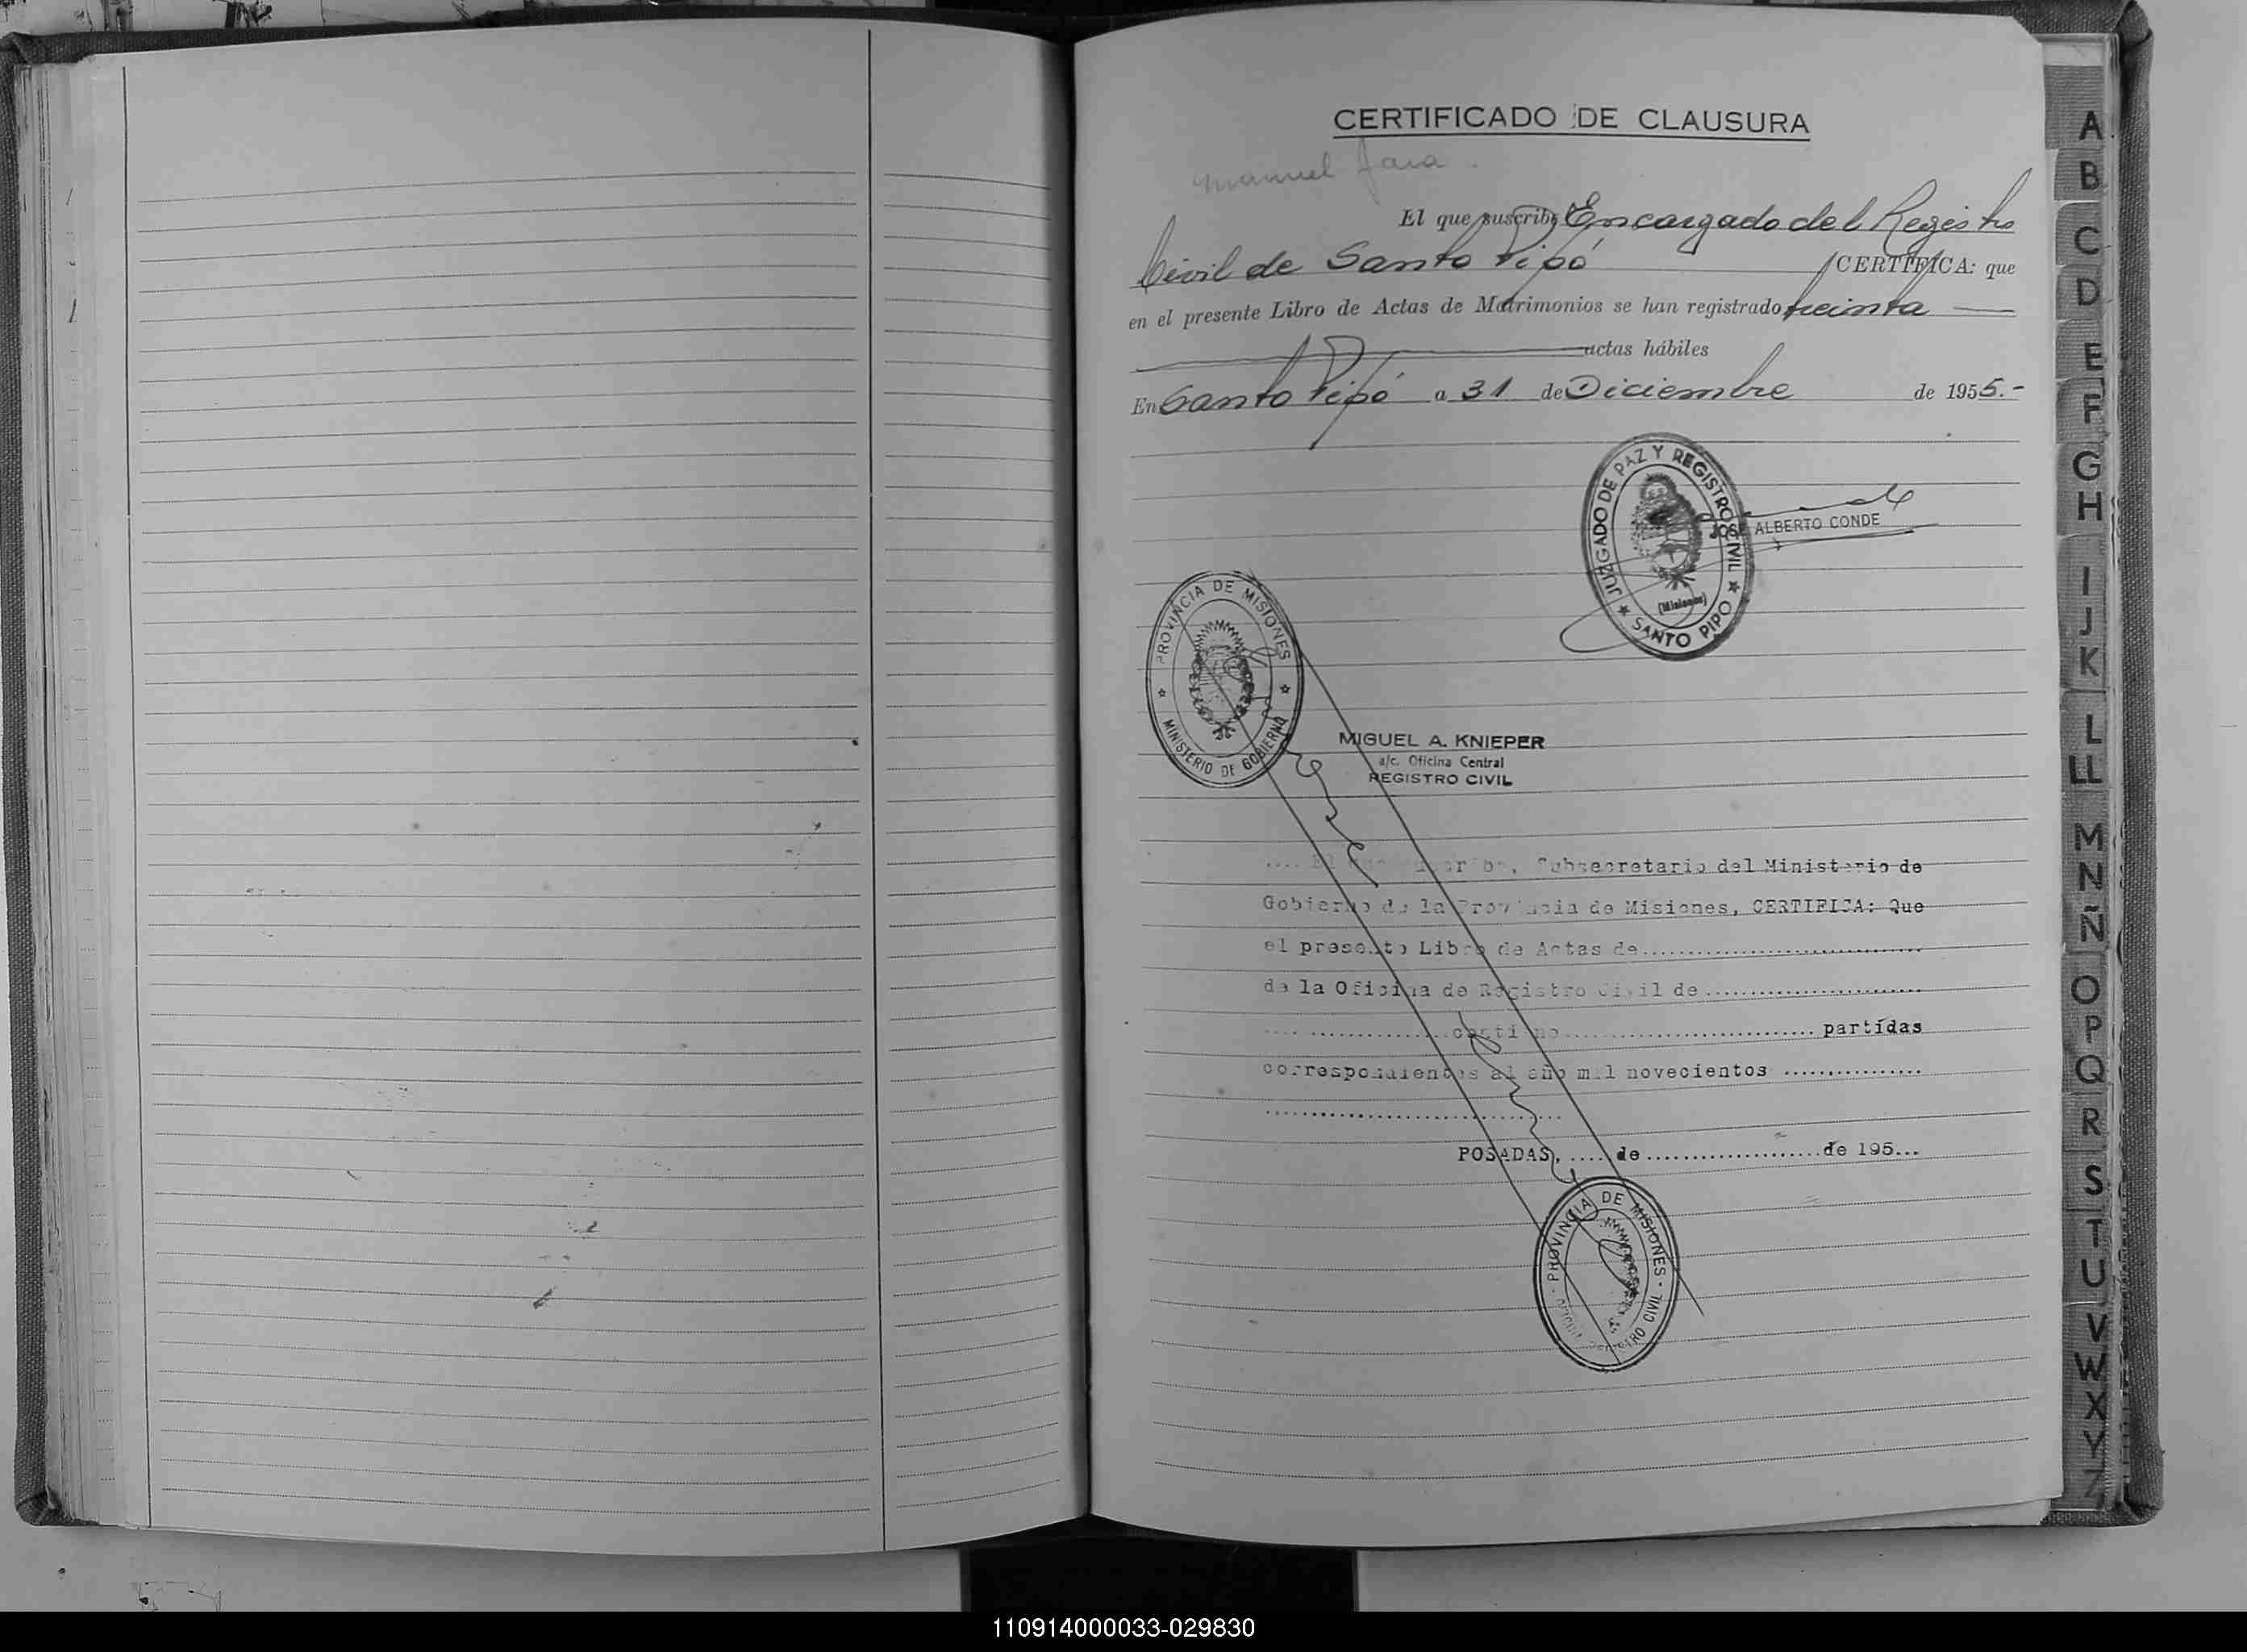 CERTIFICADO DE CLAUSURA
Manuel Jara
El que suscribe Encargado del Registro
Civil de Santo Pipó CERTIFICA: que
en el presente Libro de Actas de Matrimonios se han registrado treinta
actas hábiles
En Santo Pipó a 31 de Diciembre de 1955.-
JUZGADO DE PAZ Y REGISTRO CIVIL
(Misiones)
SANTO PIPO
JOSE ALBERTO CONDE
PROVINCIA DE MISIONES
MINISTERIO DE GOBIERNO
MIGUEL A. KNIEPER
a/c. Oficina Central
REGISTRO CIVIL
.... El que suscribe, Subsecretario del Ministerio de
Gobierno de la Provincia de Misiones, CERTIFICA: Que
el presente Libro de Actas de..............................
de la Oficina de Registro Civil de ........................
.... ...............contiene........................... partidas
correspondientes al año mil novecientos ................
.................................
POSADAS, .... de ....................de 195...
PROVINCIA DE MISIONES
REGISTRO CIVIL
A
B
C
D
E
F
G
H
I
J
K
L
LL
M
N
Ñ
O
P
Q
R
S
T
U
V
W
X
Y
Z
110914000033-029830